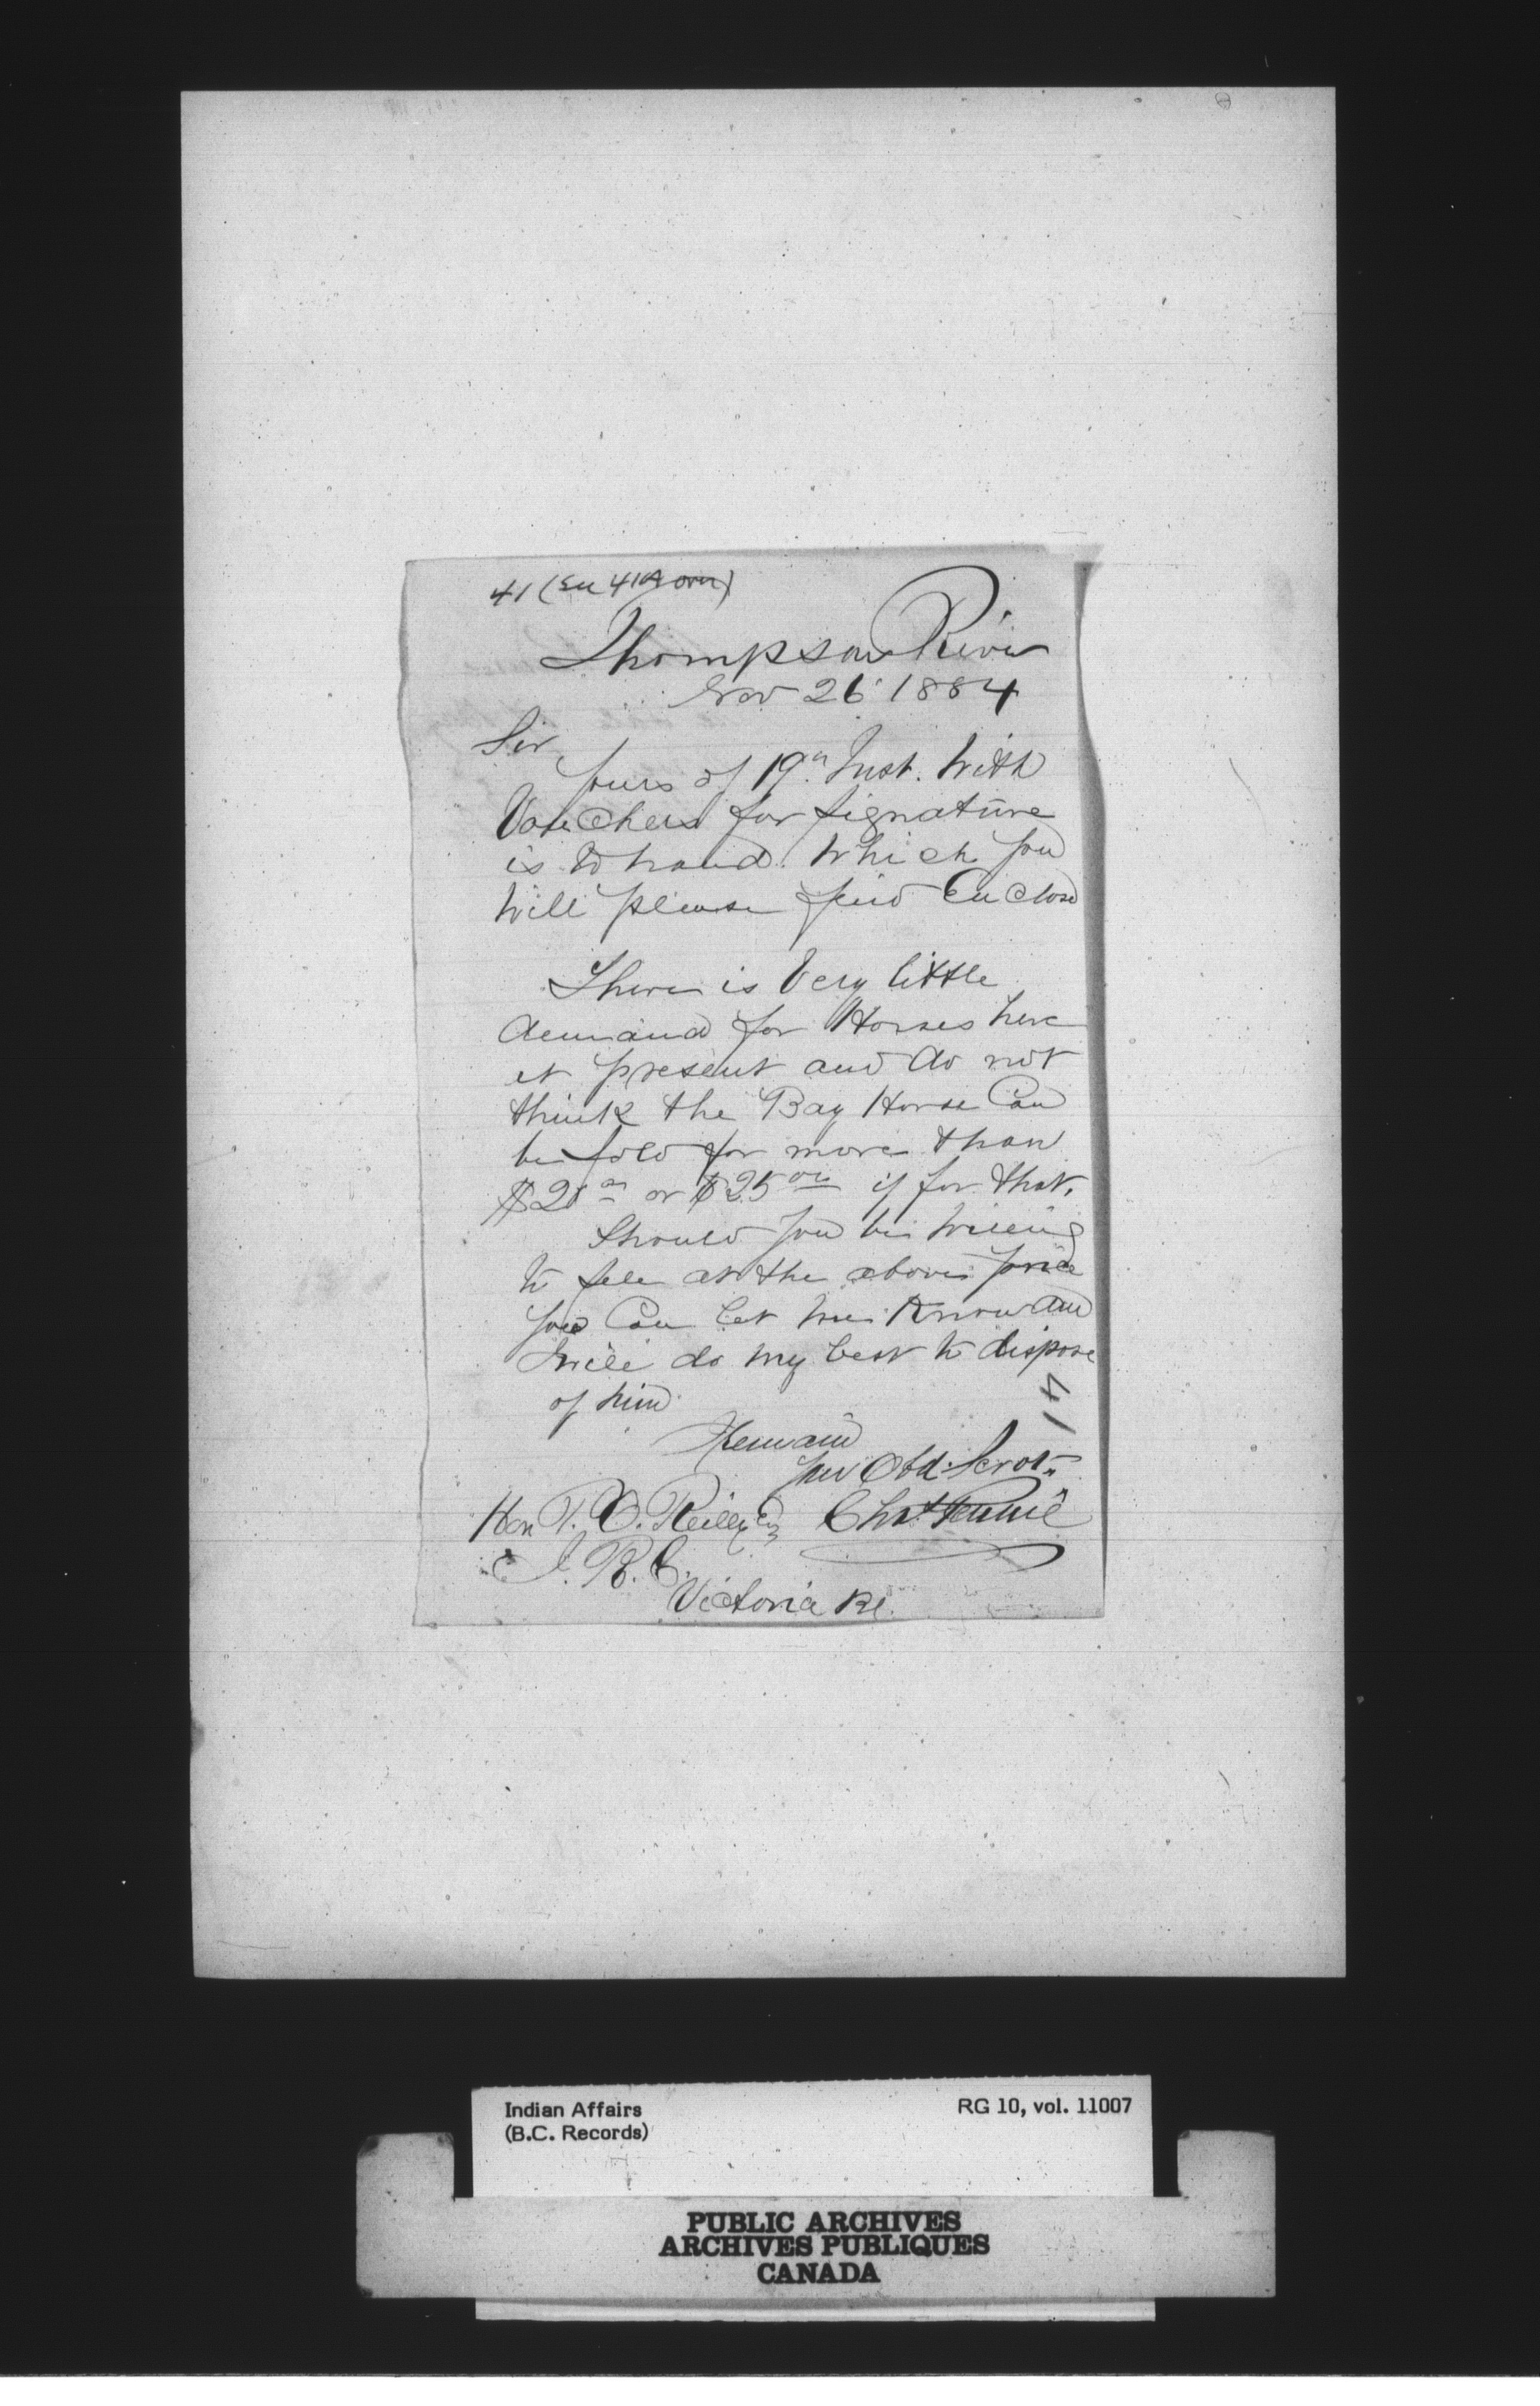 41 (See 41A over)
Thompson River
Nov 26 1884
Sir
Yours of 19th Inst. With
Vouchers for signature
is to hand. Which you
Will please find Enclosed
There is Very little
demand for Horses here
at present and do not
think the Bay Horse Can
be sold for more than
$20 00 or $25 00 if for that.
Should you be willing
to sell at the above price
you Can let me Know and
will do my best to dispose
of him
41
Remain
your Obd. Servt.
Hon P. O. Reilly Esq Chas Pennie
I. R. C.
Victoria BC.
Indian Affairs RG 10, vol. 11007
(B.C. Records)
PUBLIC ARCHIVES
ARCHIVES PUBLIQUES
CANADA